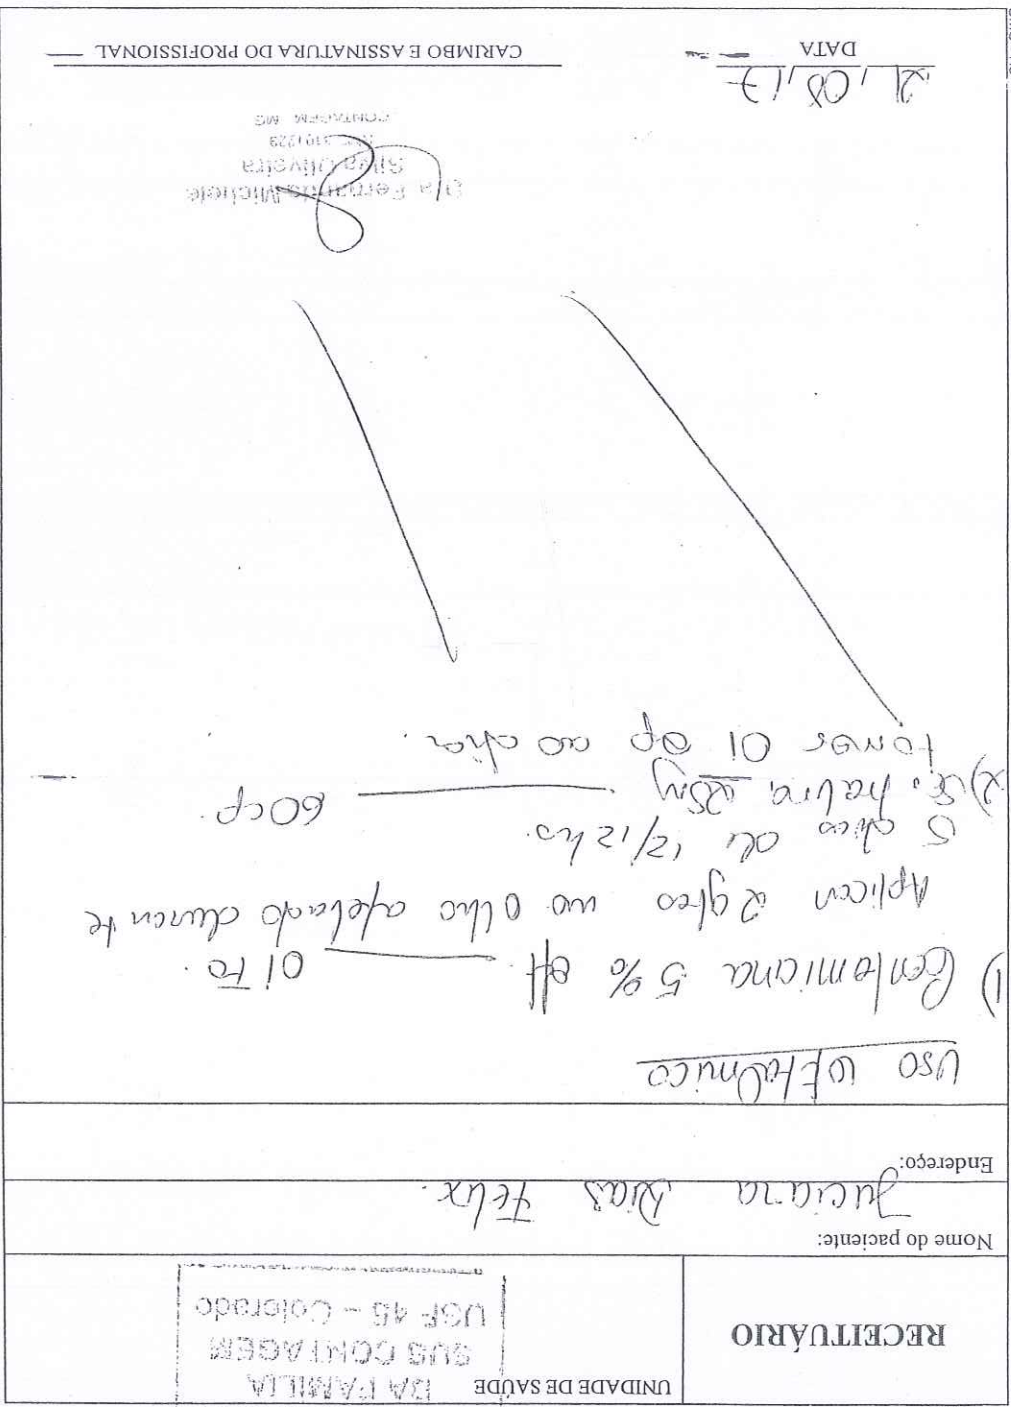 RECEITUÁRIO
UNIDADE DE SAÚDE
DA FAMILIA
SUS CONTAGEM
USF 45 - Colorado
Nome do paciente:
Juciara Dias Felix.
Endereço:
Uso oftálmico
1) Gentamicina 5% oft. 01 Fr.
Aplicar 2 gtas no olho afetado durante
5 dias de 12/12 hs.
2) 25mg 60 cp.
tomar 01 cp ao dia.
Dra Fernanda Michele
Silva Oliveira
CONTAGEM MG
21/08/17
DATA
CARIMBO E ASSINATURA DO PROFISSIONAL